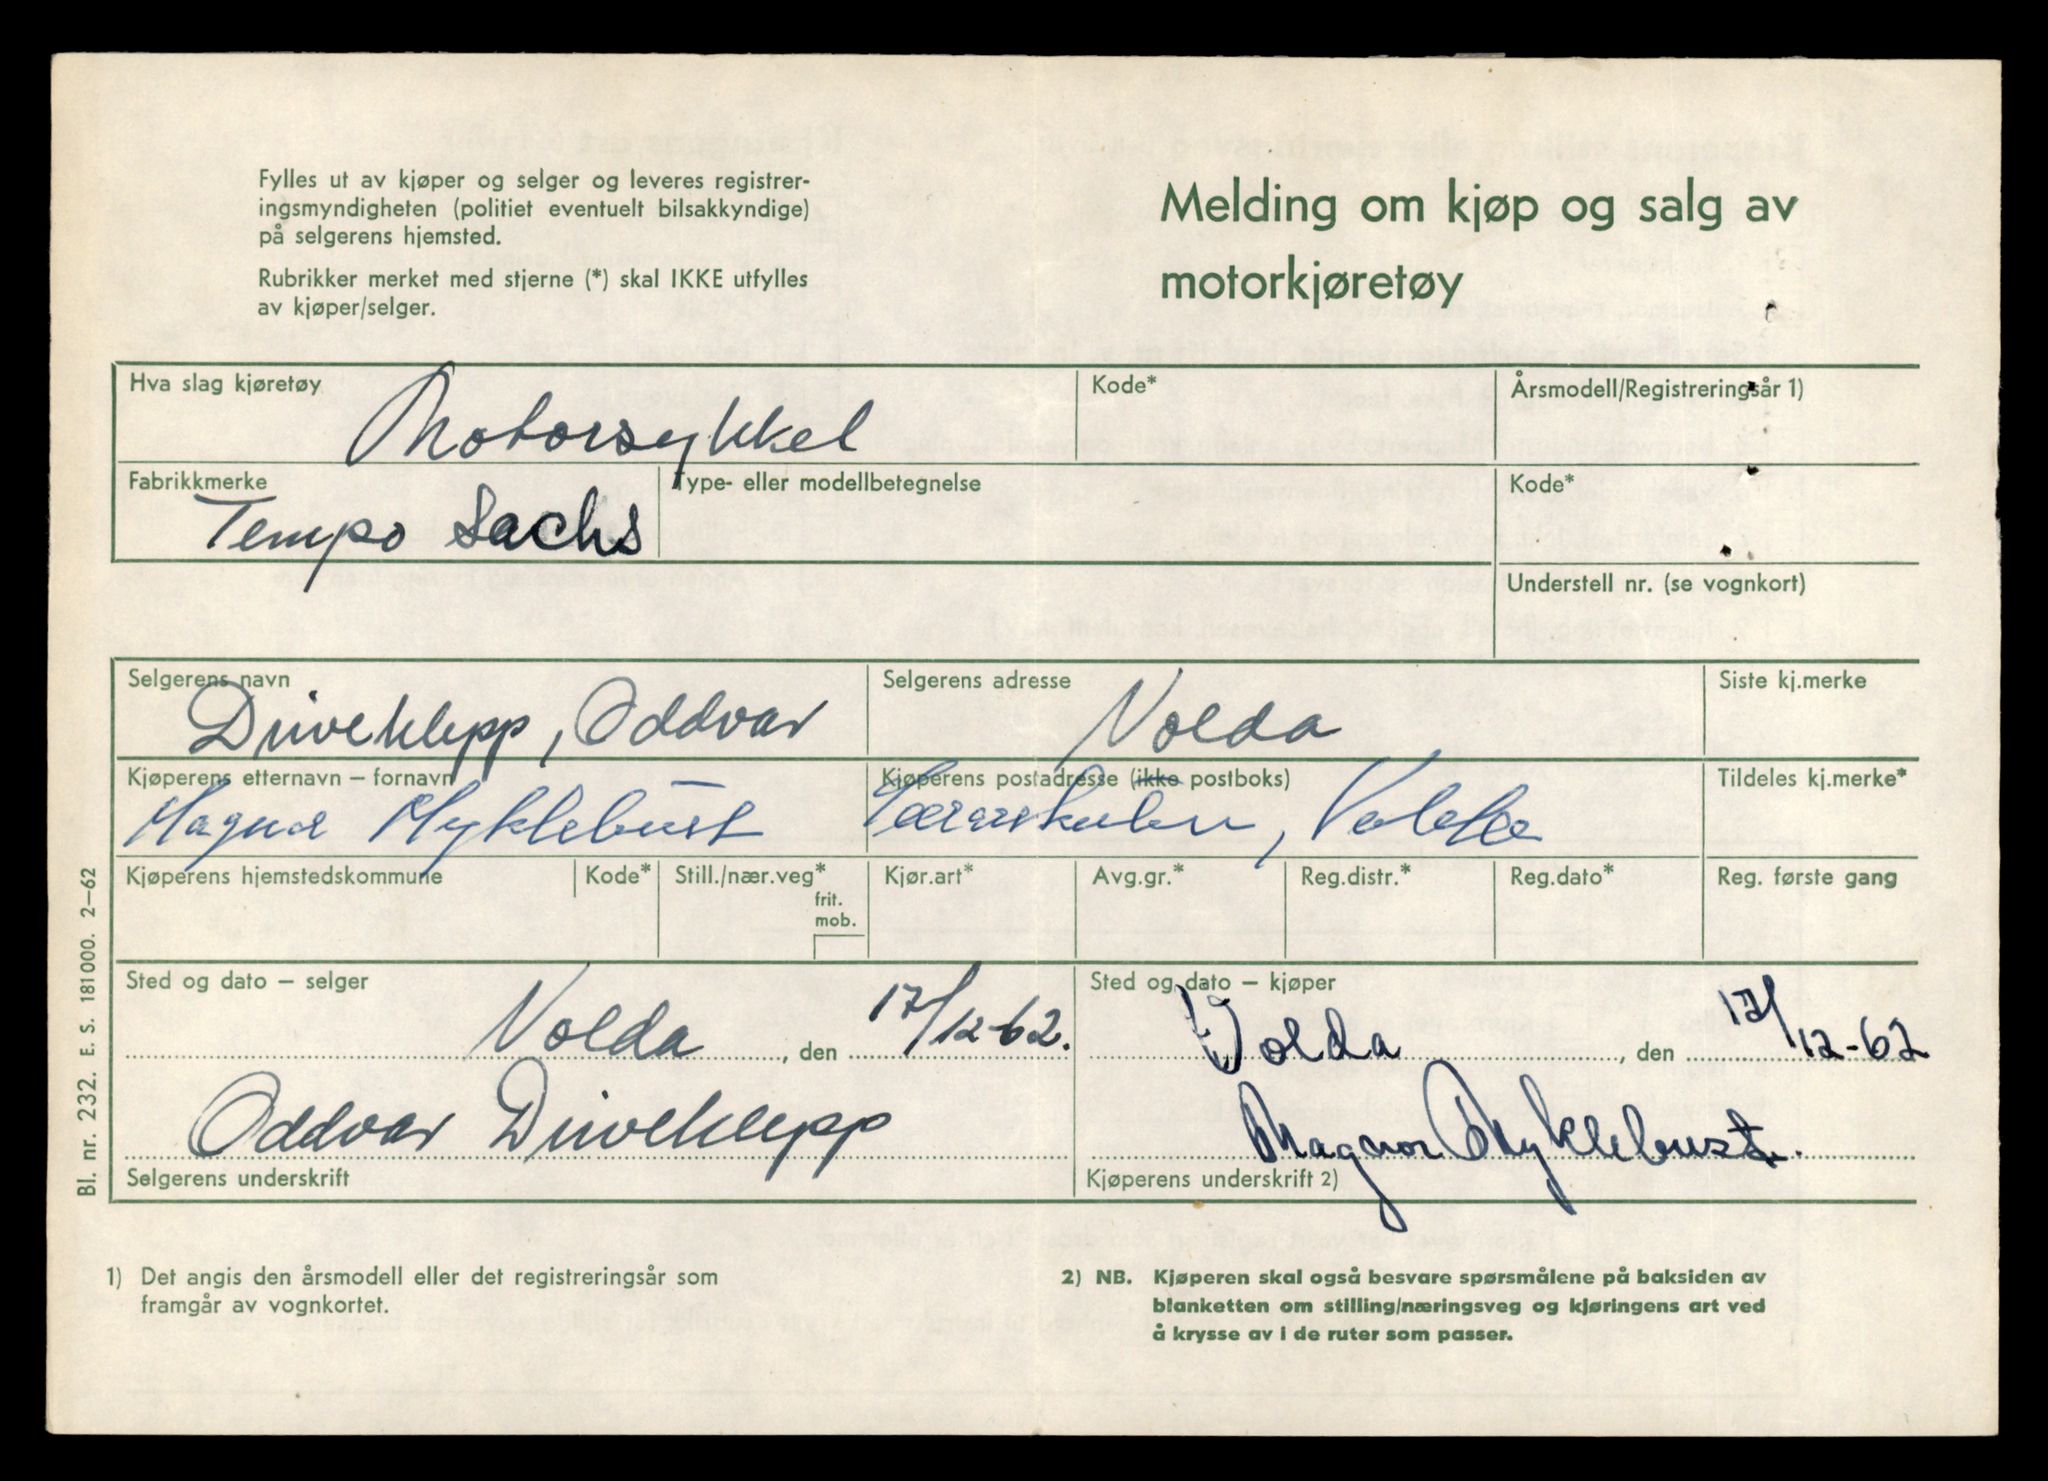 Fylles ut av kjøper og selger og leveres registrer-
ingsmyndigheten (politiet eventuelt bilsakkyndige)
på selgerens hjemsted.
Rubrikker merket med stjerne (*) skal IKKE utfylles
av kjøper/selger.
Melding om kjøp og salg av
motorkjøretøy
Hva slag kjøretøy
Motorsykkel
Kode*
Årsmodell/Registreringsår 1)
Fabrikkmerke
Tempo Sachs
Type- eller modellbetegnelse
Kode*
Understell nr. (se vognkort)
Selgerens navn
Driveklepp, Oddvar
Selgerens adresse
Volda
Siste kj.merke
Kjøperens etternavn – fornavn
Magnar Myklebust
Kjøperens postadresse (ikke postboks)
Lærarskulen, Volda
Tildeles kj.merke*
Kjøperens hjemstedskommune
Kode*
Still./nær.veg*
frit.
mob.
Kjør.art*
Avg.gr.*
Reg.distr.*
Reg.dato*
Reg. første gang
Sted og dato – selger
Volda, den 17/12-62.
Oddvar Driveklepp
Selgerens underskrift
Sted og dato – kjøper
Volda, den 17/12-62
Magnar Myklebust.
Kjøperens underskrift 2)
Bl. nr. 232. E. S. 181000. 2–62
1) Det angis den årsmodell eller det registreringsår som
framgår av vognkortet.
2) NB. Kjøperen skal også besvare spørsmålene på baksiden av
blanketten om stilling/næringsveg og kjøringens art ved
å krysse av i de ruter som passer.